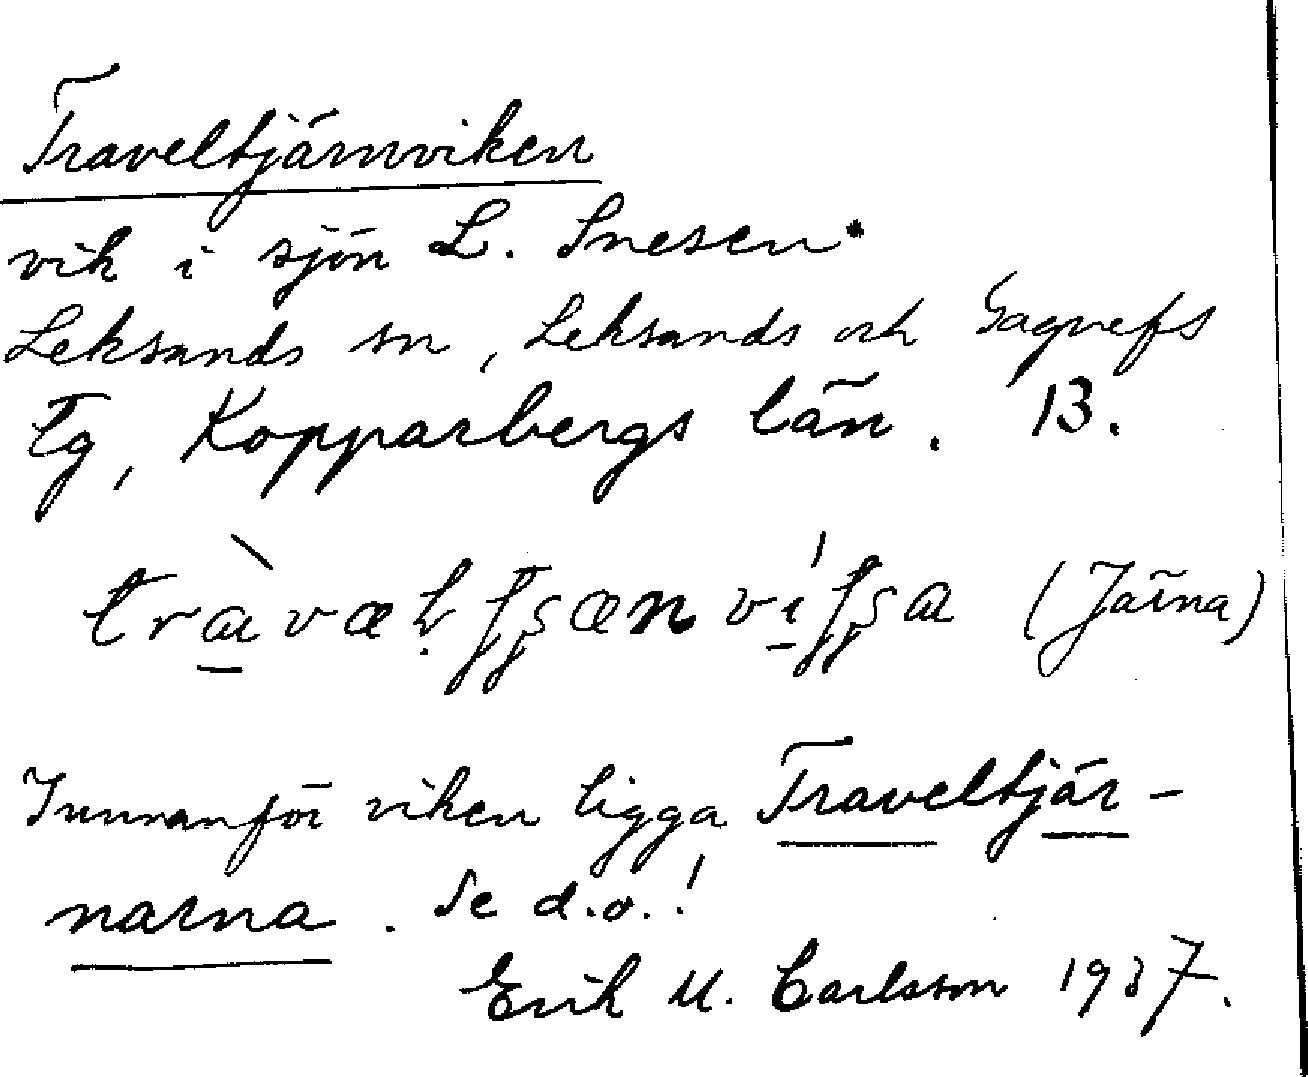 Traveltjärnviken
vik i sjön L. Snesen.
Leksands sn, Leksands och Gagnefs
tg, Kopparbergs län. 13.
(Jäina)
Innanför viken ligga Traveltjär-
narna. Se d.o.!
Erik M. Carlsson 1937.